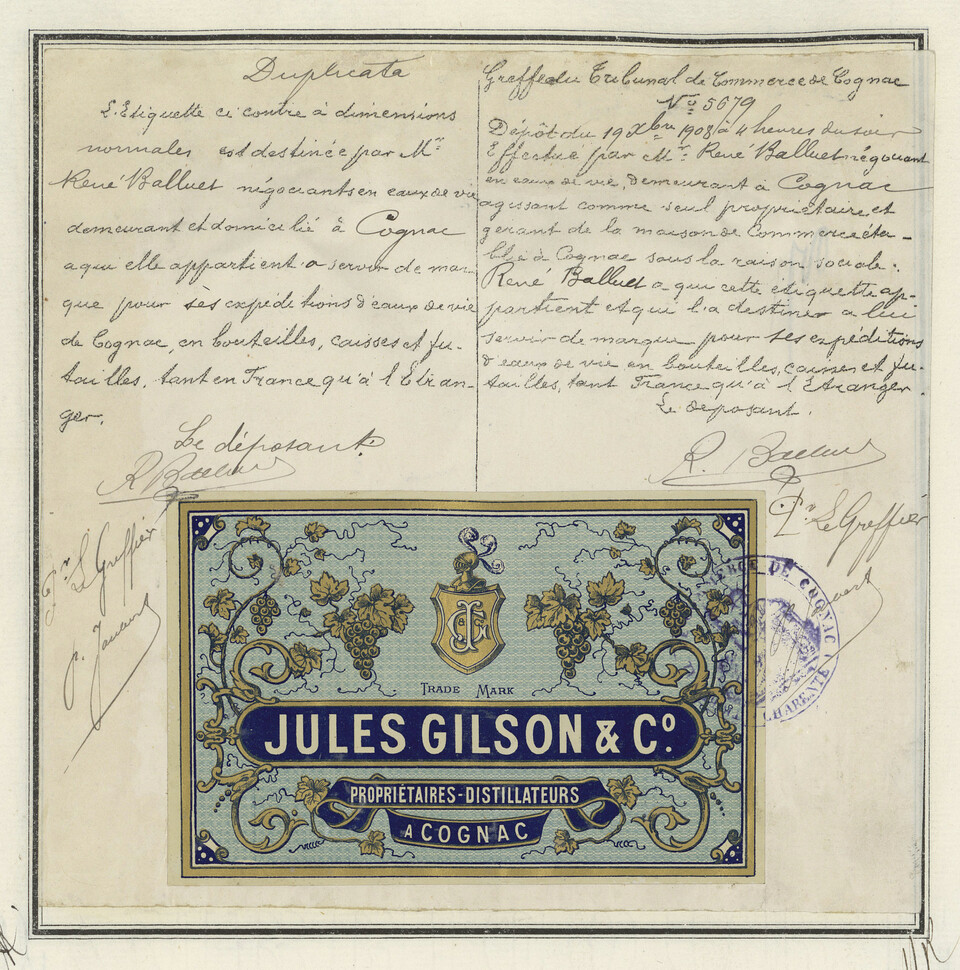 Duplicata
L'Etiquette ci contre à dimensions
normales est destinée par Mr
René Balluet négociants en eaux de vie
demeurant et domicilié à Cognac
a qui elle appartient a servir de mar-
que pour ses expéditions d'eaux de vie
de Cognac, en bouteilles, caisses et fu-
tailles, tant en France qu'à l'Etran-
ger.
Le déposant
R Balluet
Pr Le Greffier
Greffe du Tribunal de Commerce de Cognac
No 5679
Dépôt du 19 Xbre 1908 à 4 heures du soir
Effectué par Mr René Balluet négociant
en eaux de vie, demeurant à Cognac
agissant comme seul propriétaire et
gérant de la maison de Commerce éta-
blie à Cognac sous la raison sociale :
René Balluet a qui cette etiquette ap-
partient et qui l'a destiner a lui
servir de marque pour ses expéditions
d'eaux de vie en bouteilles, caisses et fu-
tailles, tant France qu'à l'Etranger
Le deposant.
R. Balluet
Pr Le Greffier
JCG
TRADE MARK
JULES GILSON & Co.
PROPRIÉTAIRES-DISTILLATEURS
A COGNAC
DE COGNAC
CHARENTE